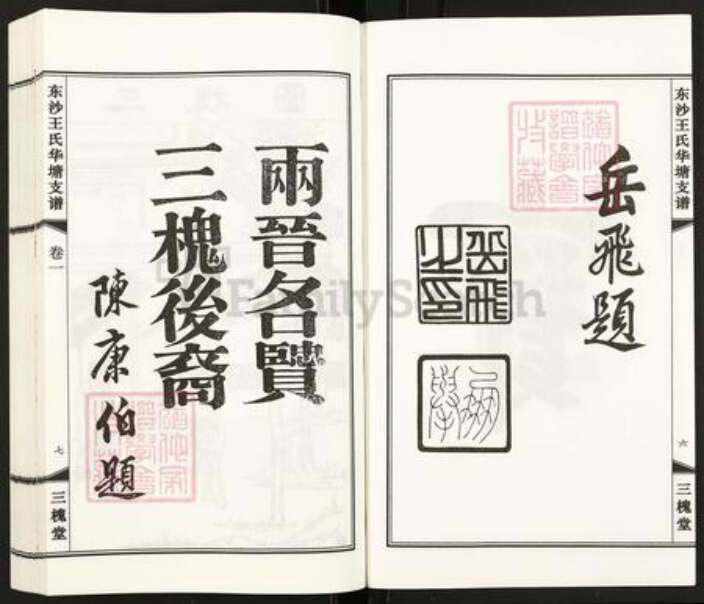 东沙王氏华塘支谱
六
三槐堂
岳飛題
岳飛之印
東沙王氏华塘支谱
卷一
七
三槐堂
兩晉名賢
三槐後裔
陳康伯題
FamilySearch